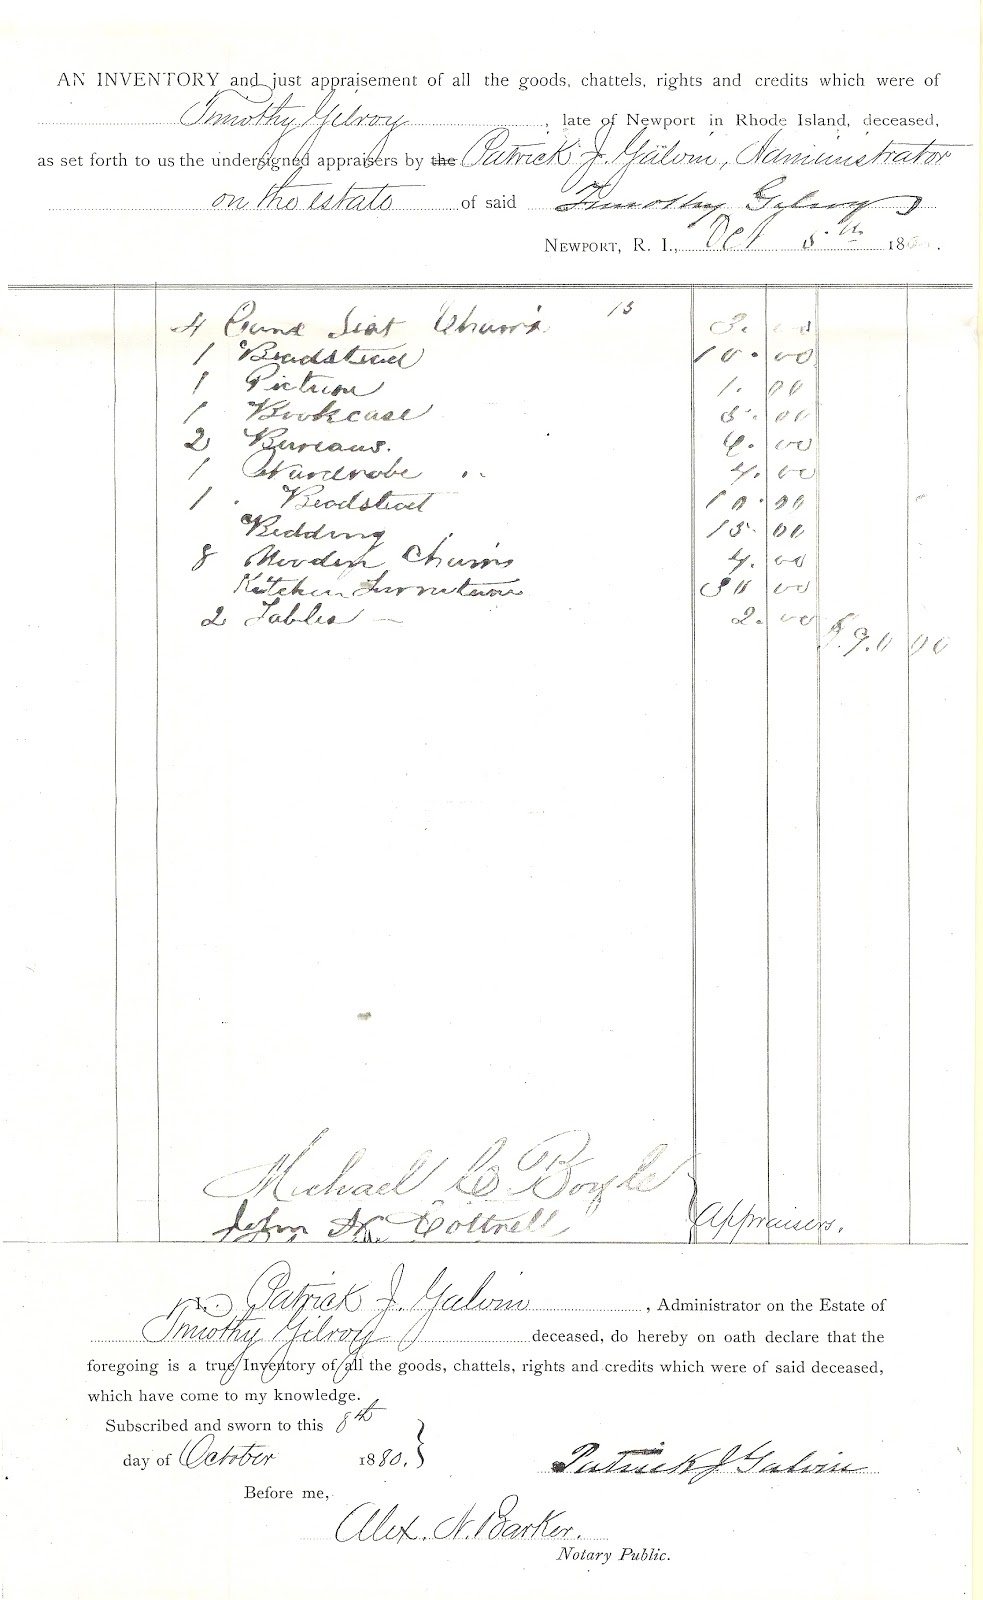 AN INVENTORY and just appraisement of all the goods, chattels, rights and credits which were of
Timothy Gilroy, late of Newport in Rhode Island, deceased,
as set forth to us the undersigned appraisers by the Patrick J. Galvin, Administrator
on the estate of said Timothy Gilroy
NEWPORT, R. I., Oct 5th 18
4 Cane Seat Chairs 3.00
1 Beadstead 10.00
1 Picture 1.00
1 Bookcase 00
2 Bureaus. 00
1 Wardrobe 4.00
1 Beadstead 10.00
Bedding 15.00
8 Wooden Chairs 4.00
Kitchen Furniture 30 00
2 Tables 2.00
$90 00
Michael C Boyle
John N. Cottrell Appraisers.
I, Patrick J. Galvin, Administrator on the Estate of
Timothy Gilroy deceased, do hereby on oath declare that the
foregoing is a true Inventory of all the goods, chattels, rights and credits which were of said deceased,
which have come to my knowledge.
Subscribed and sworn to this 8th
day of October 1880.
Patrick J Galvin
Before me,
Alex. N. Barker.
Notary Public.